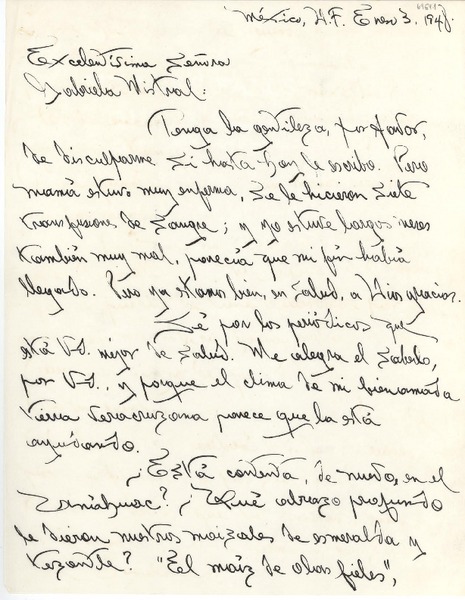 México, D.F. Enero 3. 194
Excelentísima Señora
Gabriela Mistral:
Tenga la gentileza, por favor,
de disculparme si hasta hoy le escribo. Pero
mamá estuvo muy enferma, se le hicieron siete
transfusiones de sangre; y yo estuve largos meses
también muy mal, parecía que mi fin había
llegado. Pero ya estamos bien, en salud, a Dios gracias.
Sé por los periódicos que
está Ud. mejor de salud. Me alegra el saberlo,
por Ud., y porque el clima de mi bienamada
tierra veracruzana parece que la está
ayudando.
¿Está contenta, de nuevo, en el
Anáhuac? ¿Qué abrazo profundo
le dieron nuestros maizales de esmeralda y
"El maíz de obras fieles",